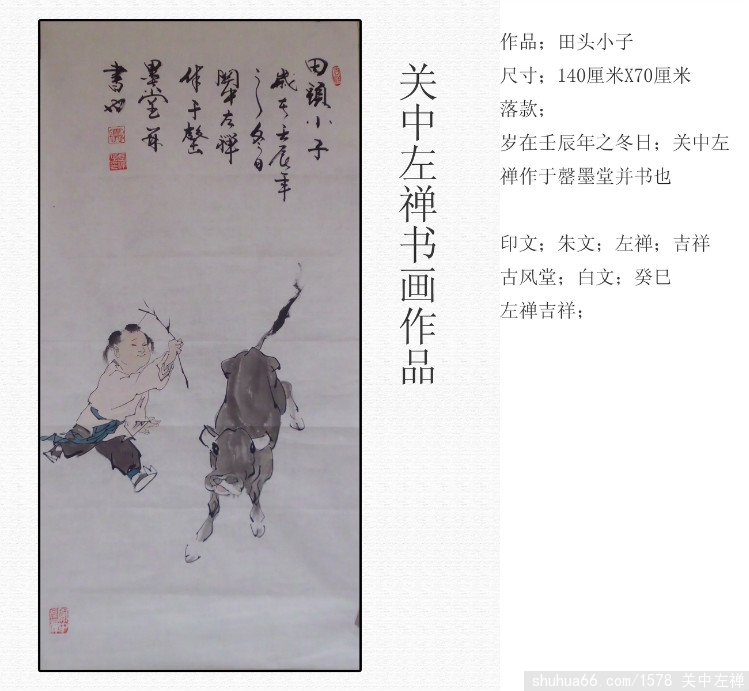 田頭小子
歲在壬辰年
之冬日
關中左禪
作于罄
墨堂並
書也
关中左禅书画作品
作品；田头小子
尺寸；140厘米X70厘米
落款；
岁在壬辰年之冬日；关中左
禅作于罄墨堂并书也
印文；朱文；左禅；吉祥
古风堂；白文；癸巳
左禅吉祥；
shuhua66.com/1578 关中左禅